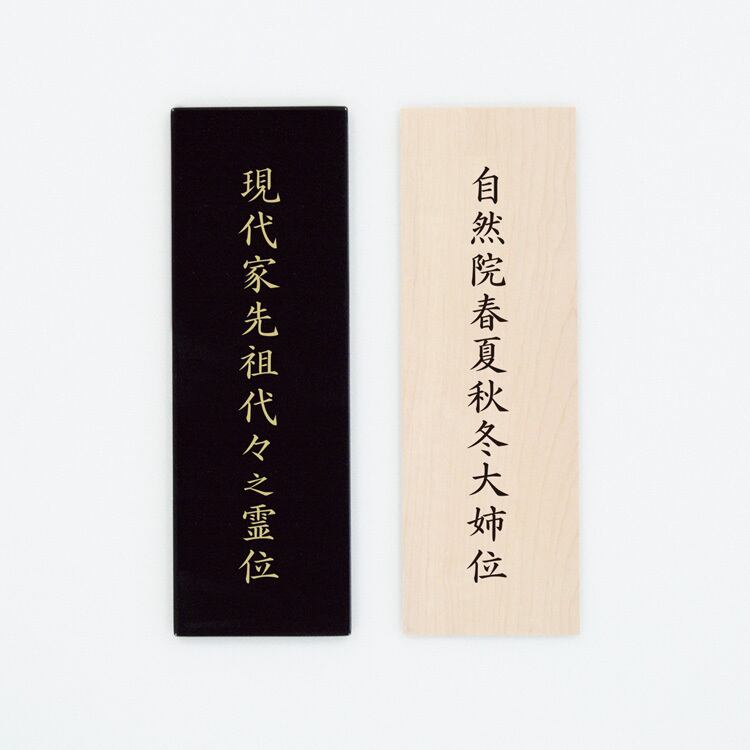 現代家先祖代々之霊位
自然院春夏秋冬大姉位